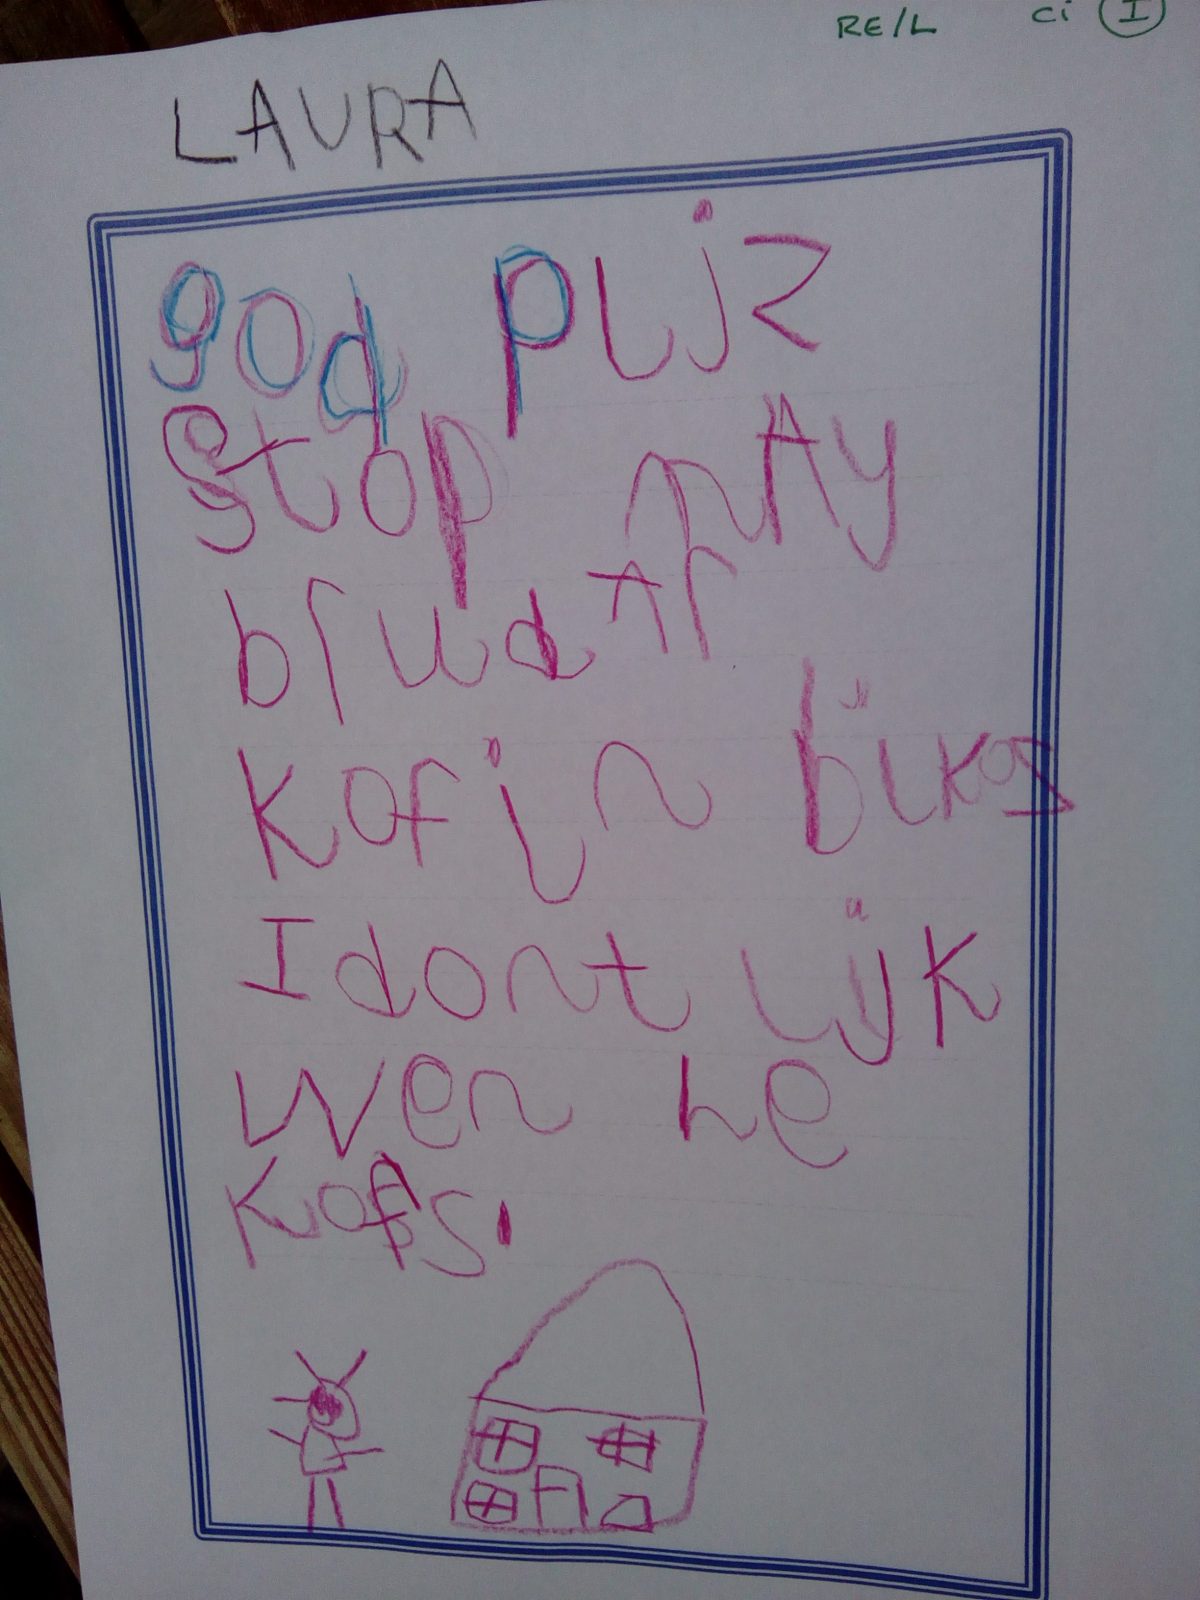 RE/L ci I
LAURA
god pljz
stop mAy
brudtr
kofin bikos
I dont lijk
wen he
kofs.